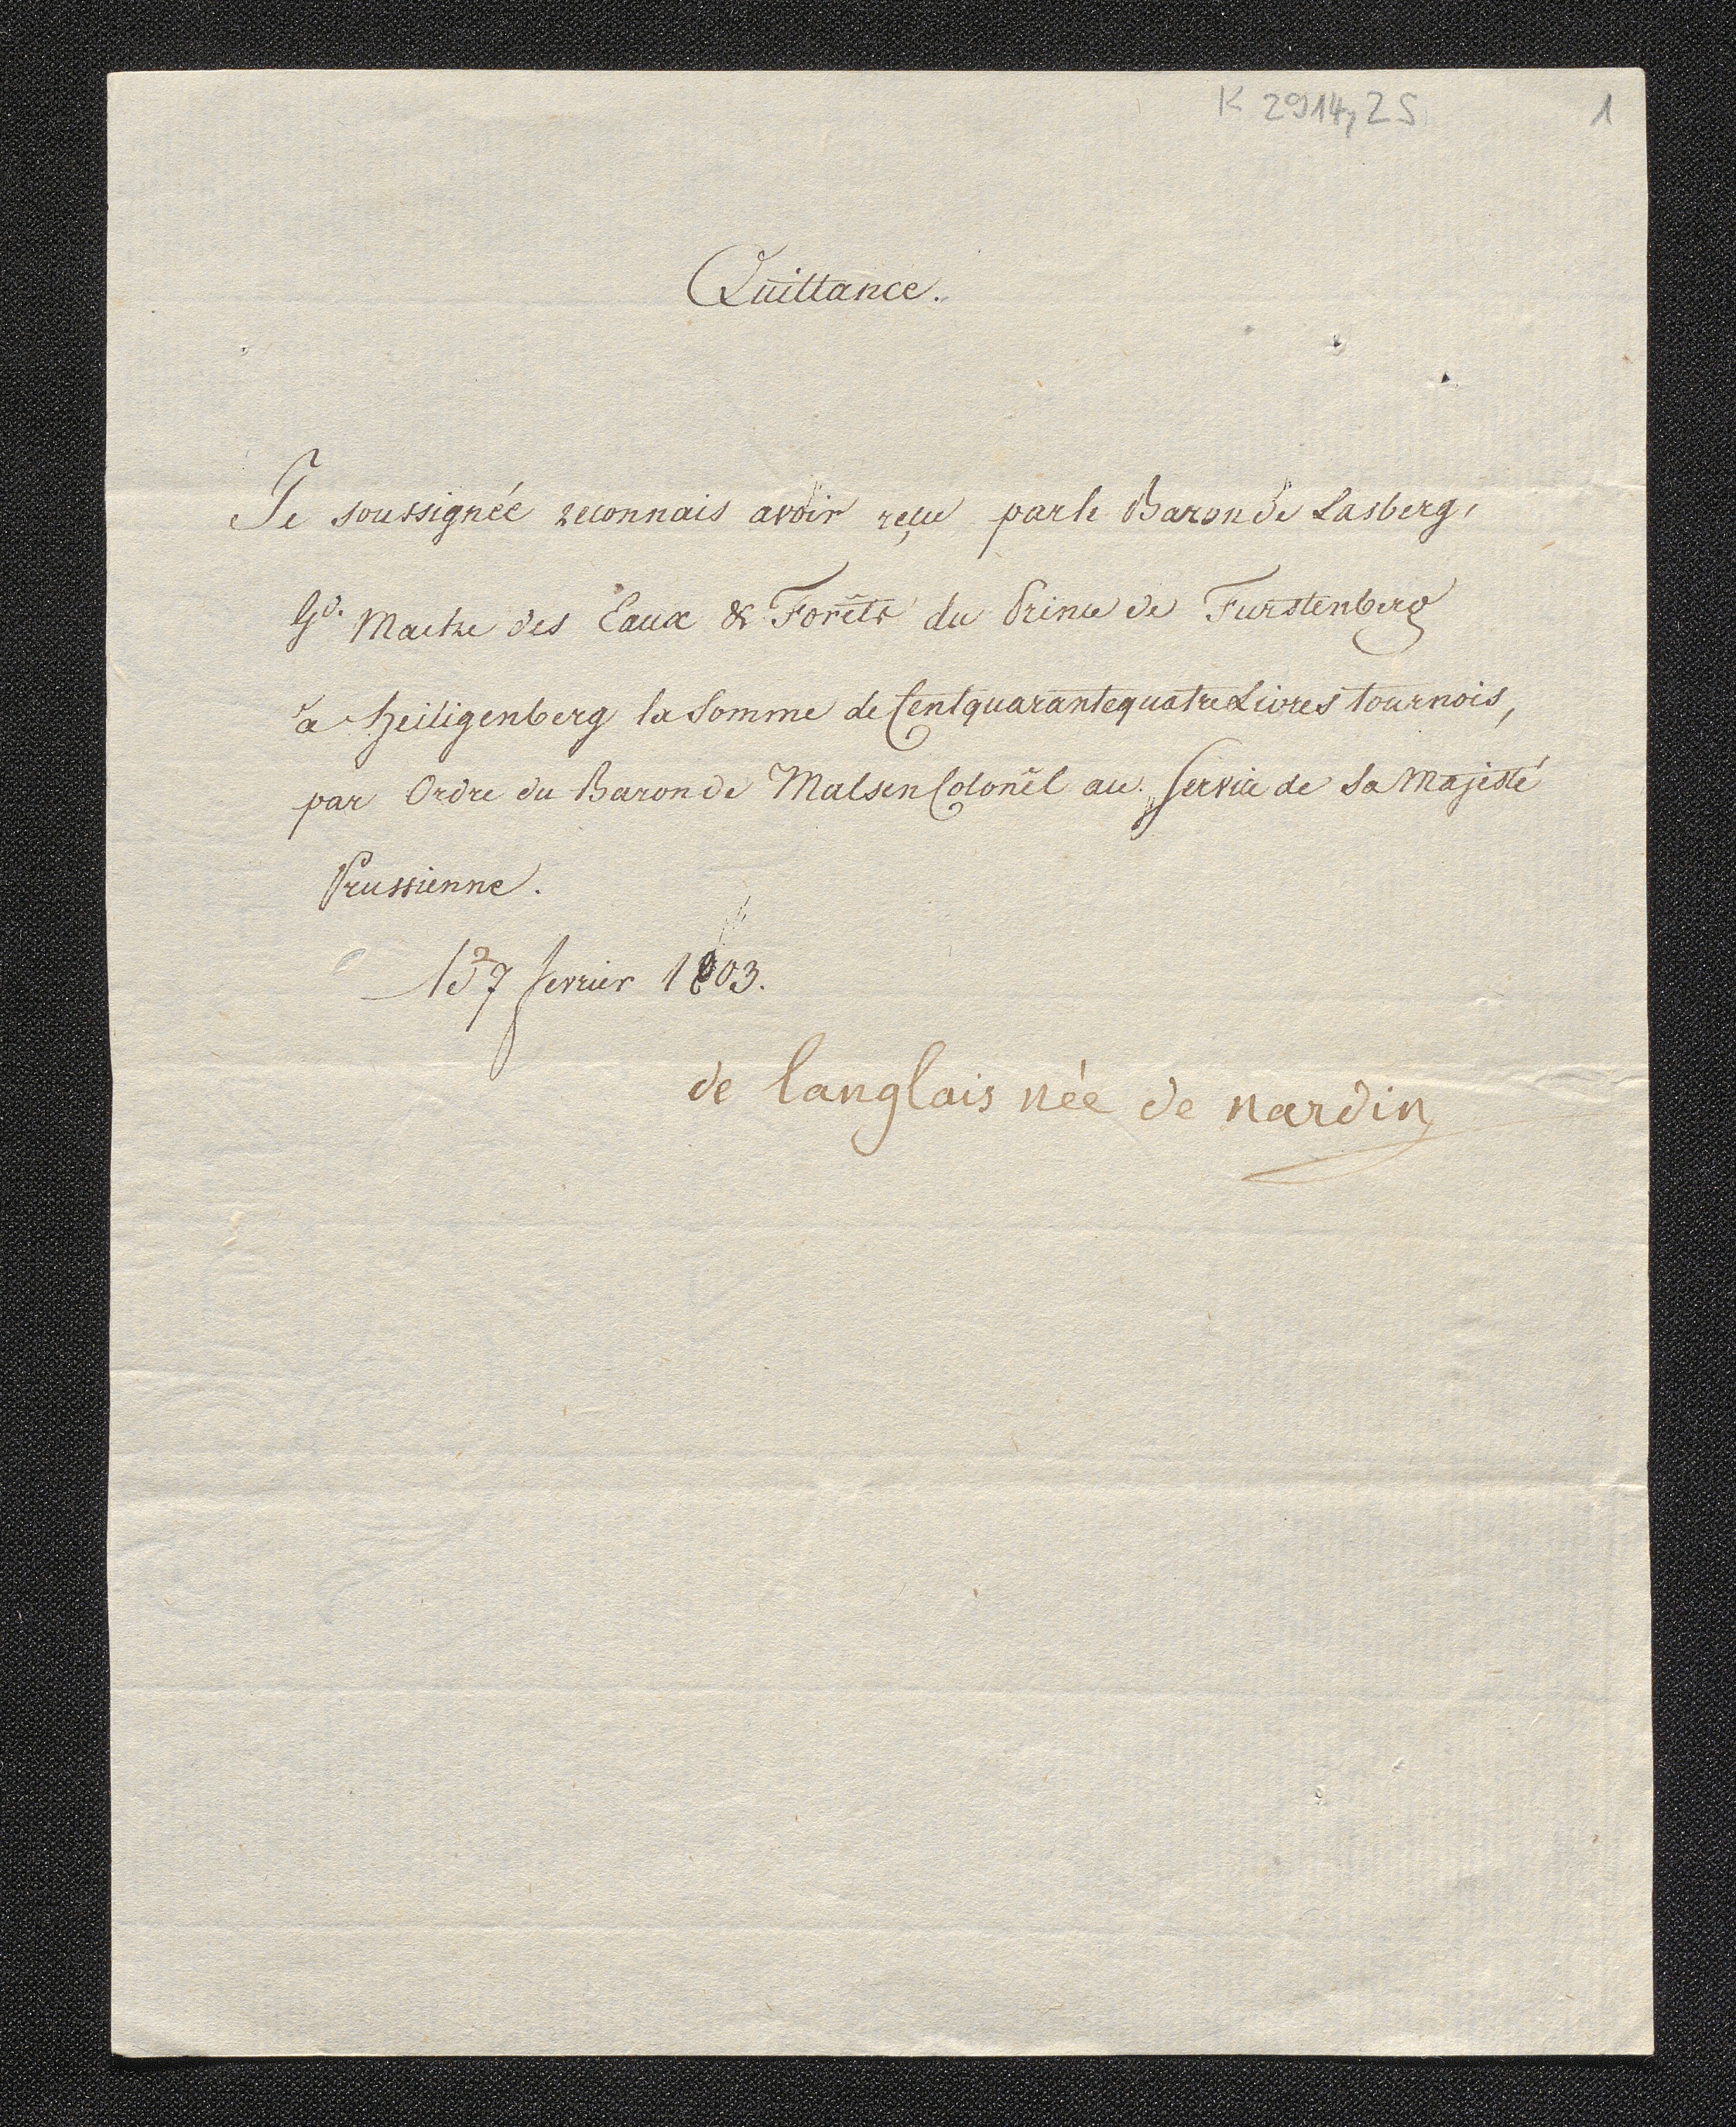 K 2914, 25 1
Quittance.
Je soussignée reconnais avoir reçu par le Baron de Lasberg,
Gd. Maitre des Eaux & Forêts du Prince de Furstenberg
à Heiligenberg la Somme de Cent quarante quatre Livres tournois,
par Ordre du Baron de Malsen Colonel au Service de Sa Majesté
Prussienne.
fevrier 1803.
de langlais née de nardin